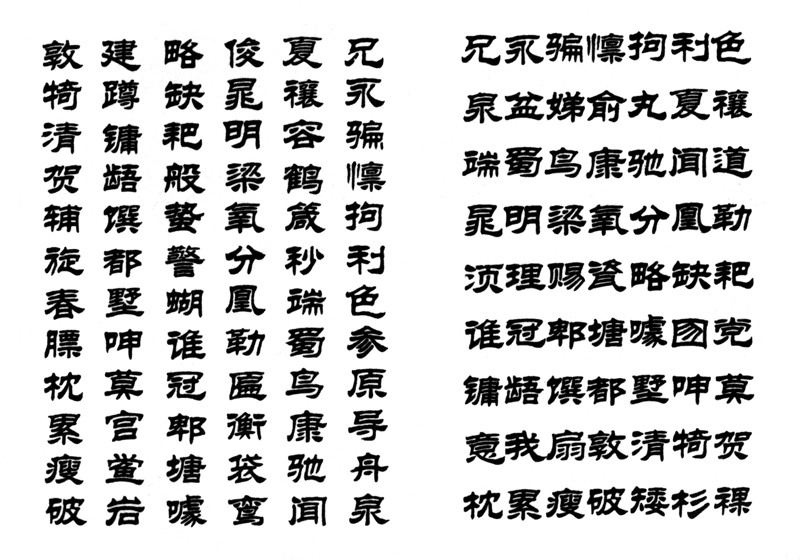 兄永骗懔拘利色参原导舟泉
夏禳容鹤箴秒端蜀鸟康驰闻
俊晁明梁氧分凰勒匾衡袋鸾
略缺耙般蛰警蝴谁冠郫塘噱
建蹲镛龉馔都墅呻莫宫岩
敦犄清贺辅旋春膘枕累瘦破
兄永骗懔拘利色
泉盆娣俞丸夏禳
端蜀鸟康驰闻道
晁明梁氧分凰勒
须理赐瓷略缺耙
谁冠郫塘噱囫党
镛龉馔都墅呻莫
意我扇敦清犄贺
枕累瘦破矮杉裸